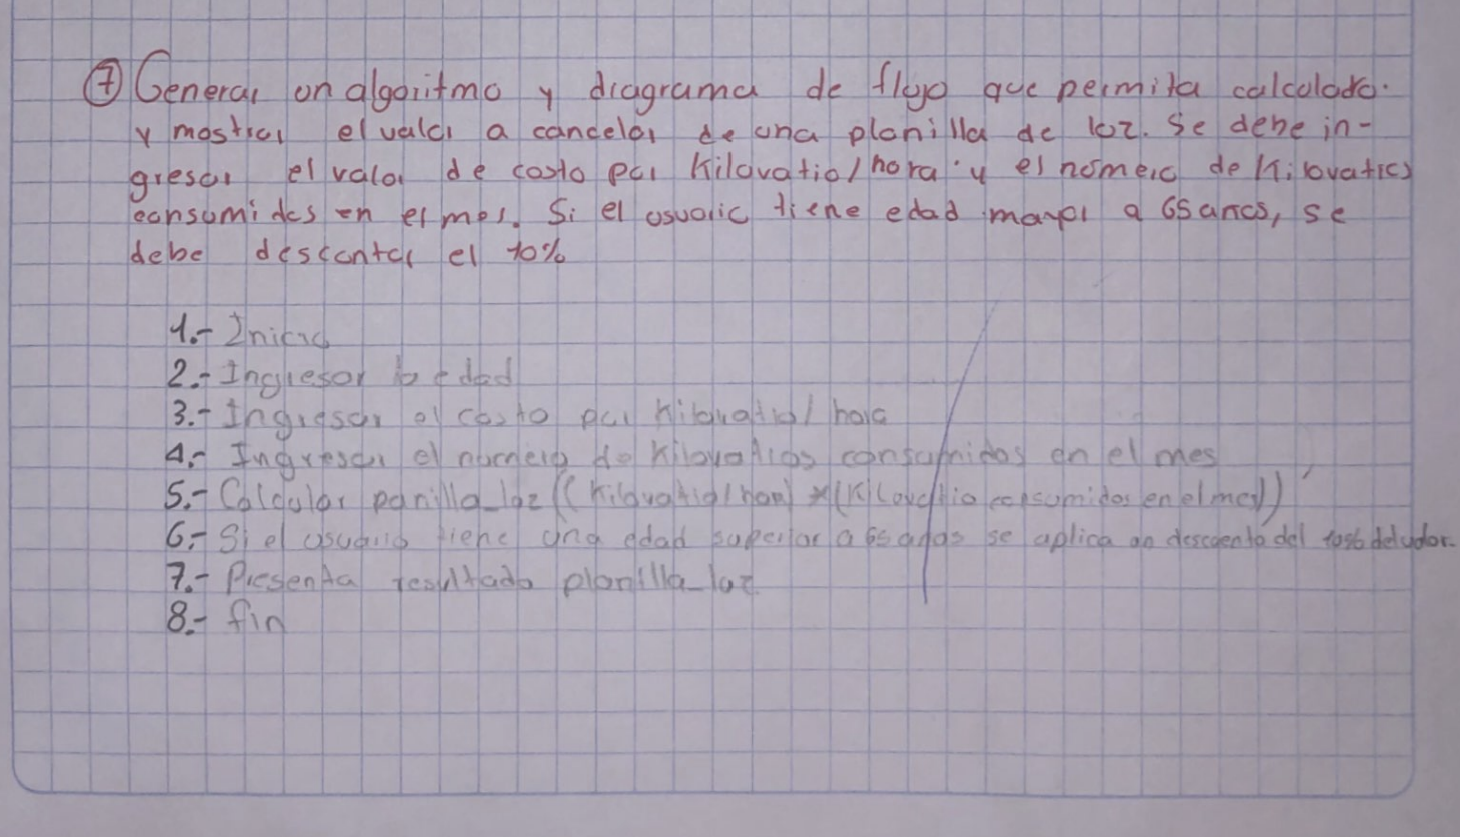 ⑦ Generar un algoritmo y diagrama de flujo que permita calcular
y mostrar el valor a cancelar de una planilla de luz. Se debe in-
gresar el valor de costo por Kilovatio/hora y el número de Kilovatios
consumidos en el mes. Si el usuario tiene edad mayor a 65 anos, se
debe descontar el 10%
1.- Inicio
2.- Ingresar la edad
3.- Ingresar el costo por Kilovatio/hora
4.- Ingresar el numero de Kilovatios consumidos en el mes
5.- Calcular panilla_luz ((Kilovatio/hora) *(Kilovatio consumidos en el mes))
6.- Si el usuario tiene una edad superior a 65 años se aplica un descuento del 10% del valor.
7.- Presenta resultado planilla_luz
8.- fin